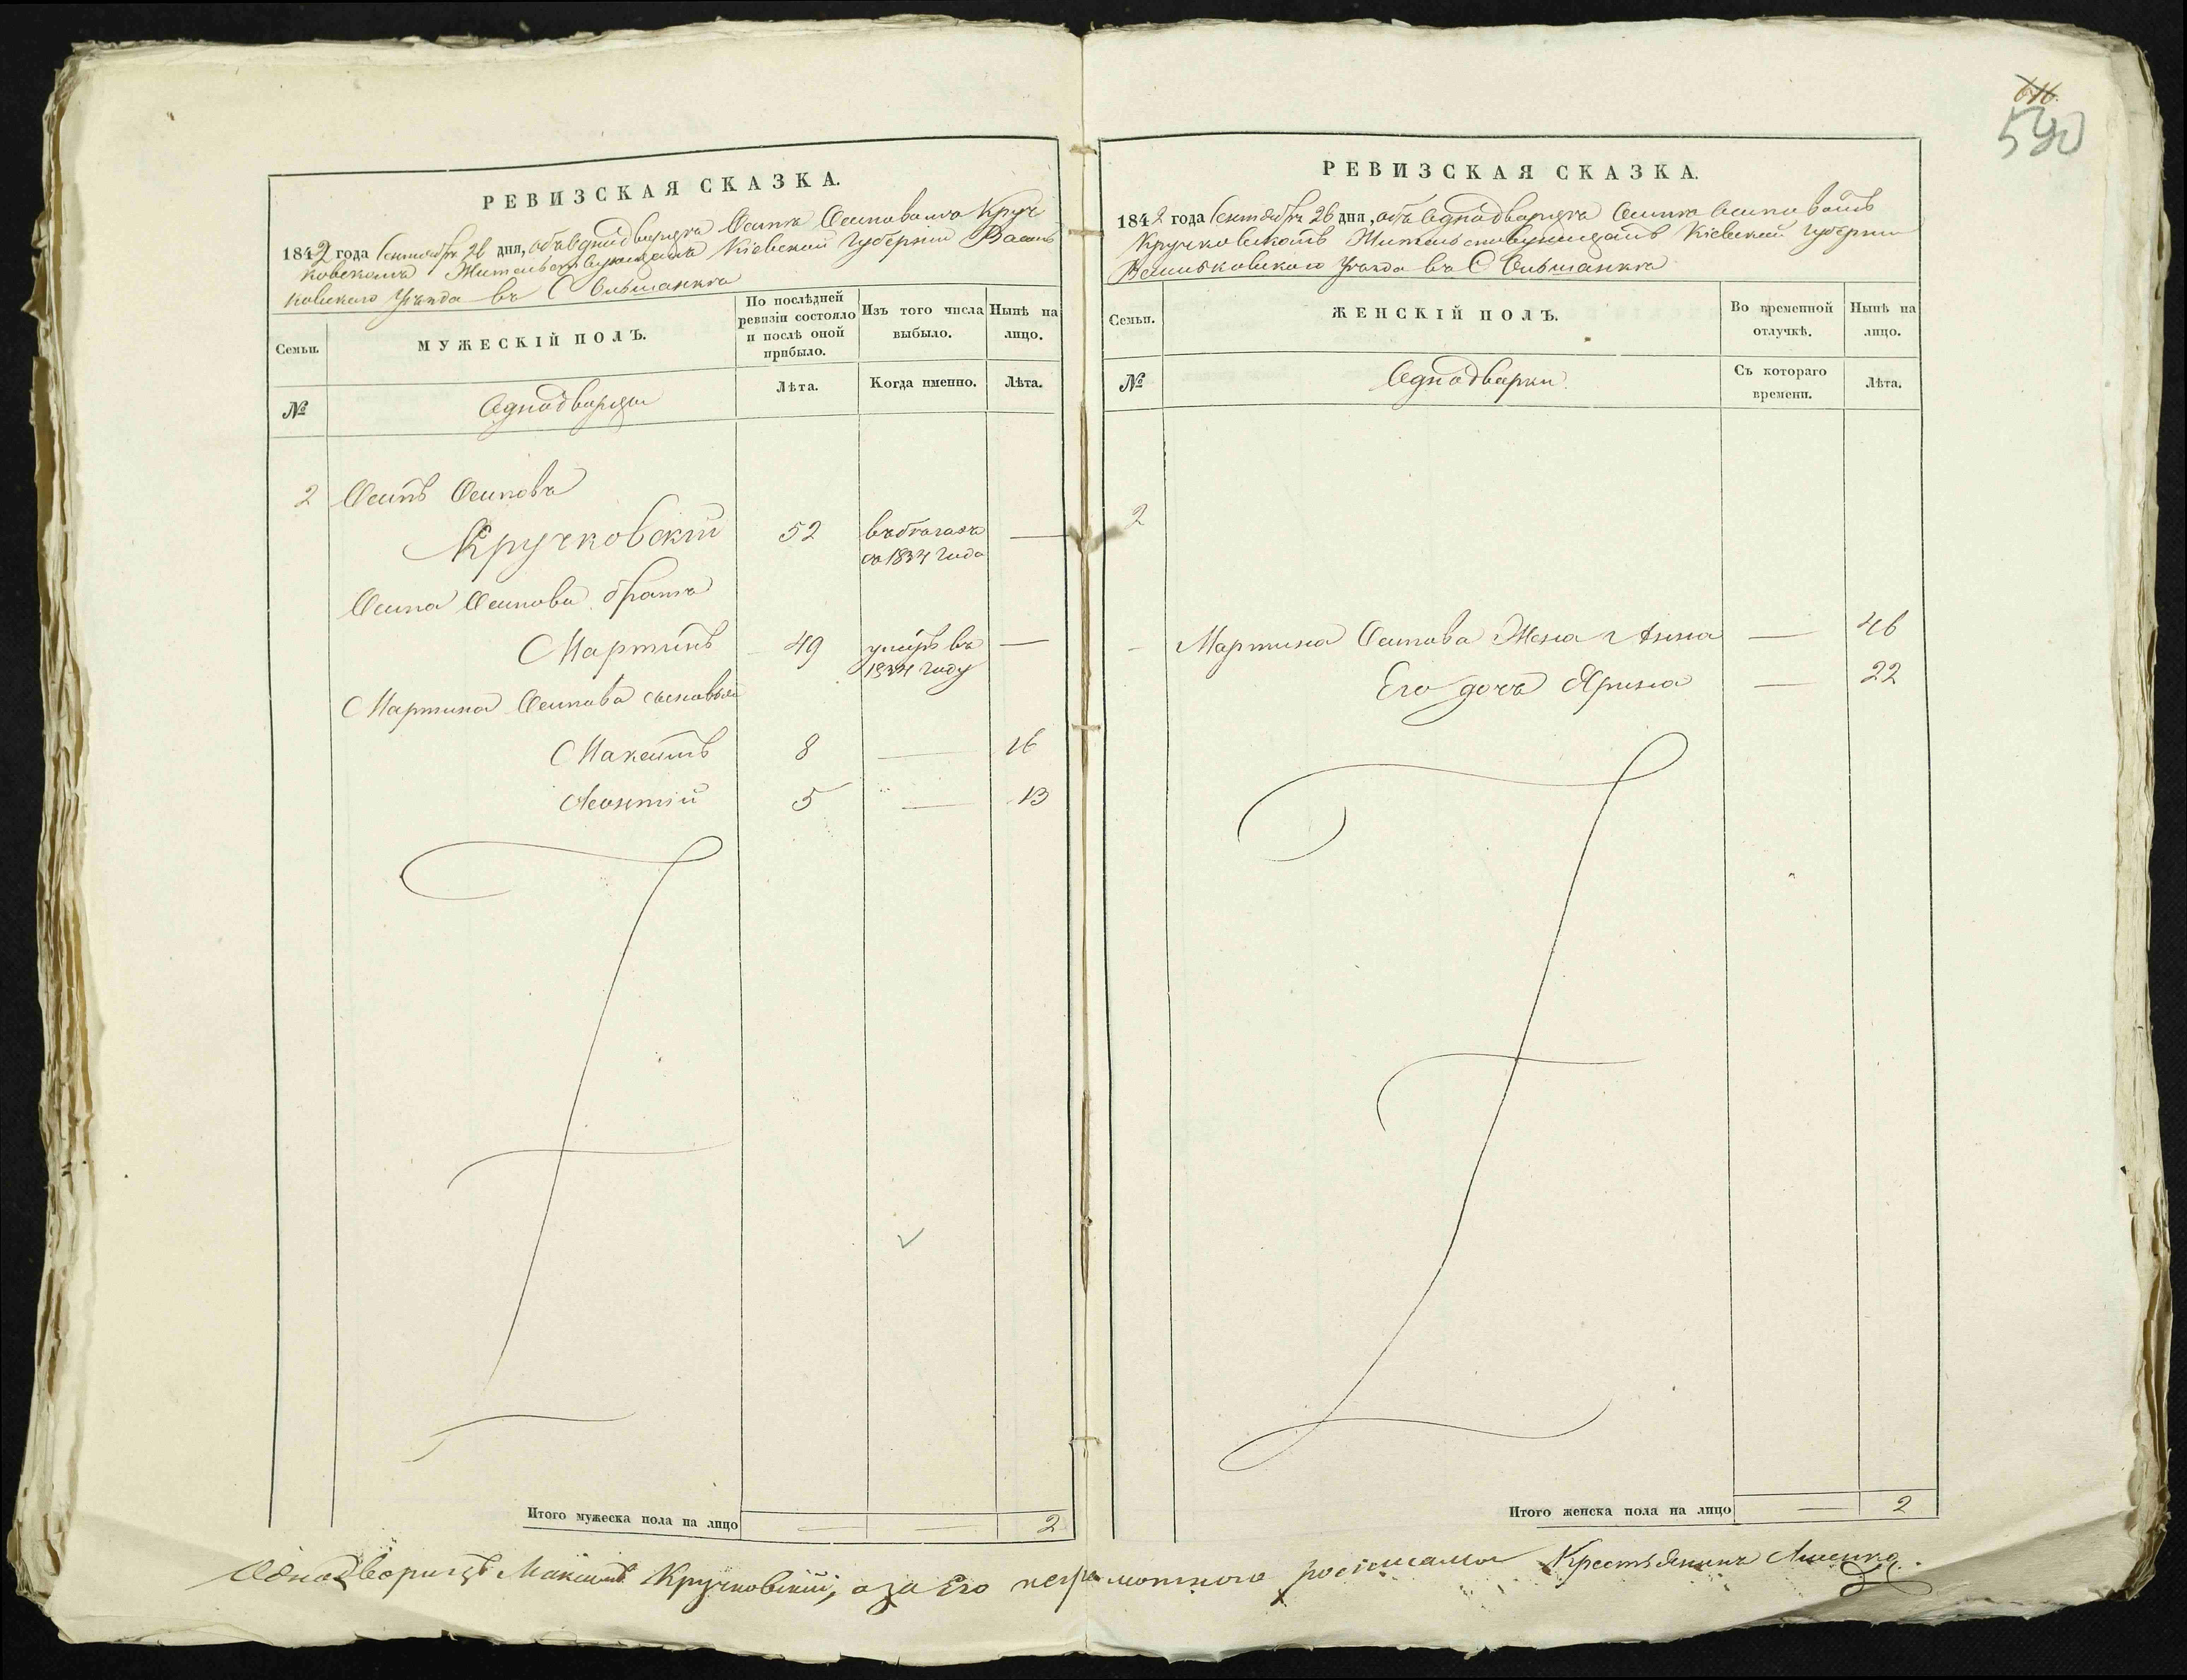 616
590
РЕВИЗСКАЯ СКАЗКА.
1842 года Сентября 26 дня, объ Однодворцѣ Осипѣ Осиповомъ Круч
ковскомъ Жительствующемъ Кіевской Губерніи Василь
ковскаго Уѣзда въ С Ольшанкѣ
Семьи.
МУЖЕСКІЙ ПОЛЪ.
По послѣдней
ревизіи состояло
и послѣ оной
прибыло.
Изъ того числа
выбыло.
Нынѣ на
лицо.
№
Однодворцы
Лѣта.
Когда именно.
Лѣта.
2 Осипъ Осиповъ
Кручковскій 52 въ бѣгахъ —
съ 1834 года
Осипа Осипова братъ
Мартинъ 49 умеръ въ —
1834 году
Мартина Осипова сыновья
Максимъ 8 — 16
Леонтій 5 — 13
Итого мужеска пола на лицо — — 2
РЕВИЗСКАЯ СКАЗКА.
1842 года Сентября 26 дня, объ Однодворцѣ Осипѣ Осиповомъ
Кручковскомъ Жительствующемъ Кіевской Губерніи
Васильковскаго Уѣзда въ С Ольшанкѣ
Семьи.
ЖЕНСКІЙ ПОЛЪ.
Во временной
отлучкѣ.
Нынѣ на
лицо.
№
Однодворки
Съ котораго
времени.
Лѣта.
2
Мартина Осипова Жена Анна — 46
Его дочь Ярина — 22
Итого женска пола на лицо — 2
Однодворецъ Максимъ Кручковскій, а за Его неграмотного росписался Крестьянинъ